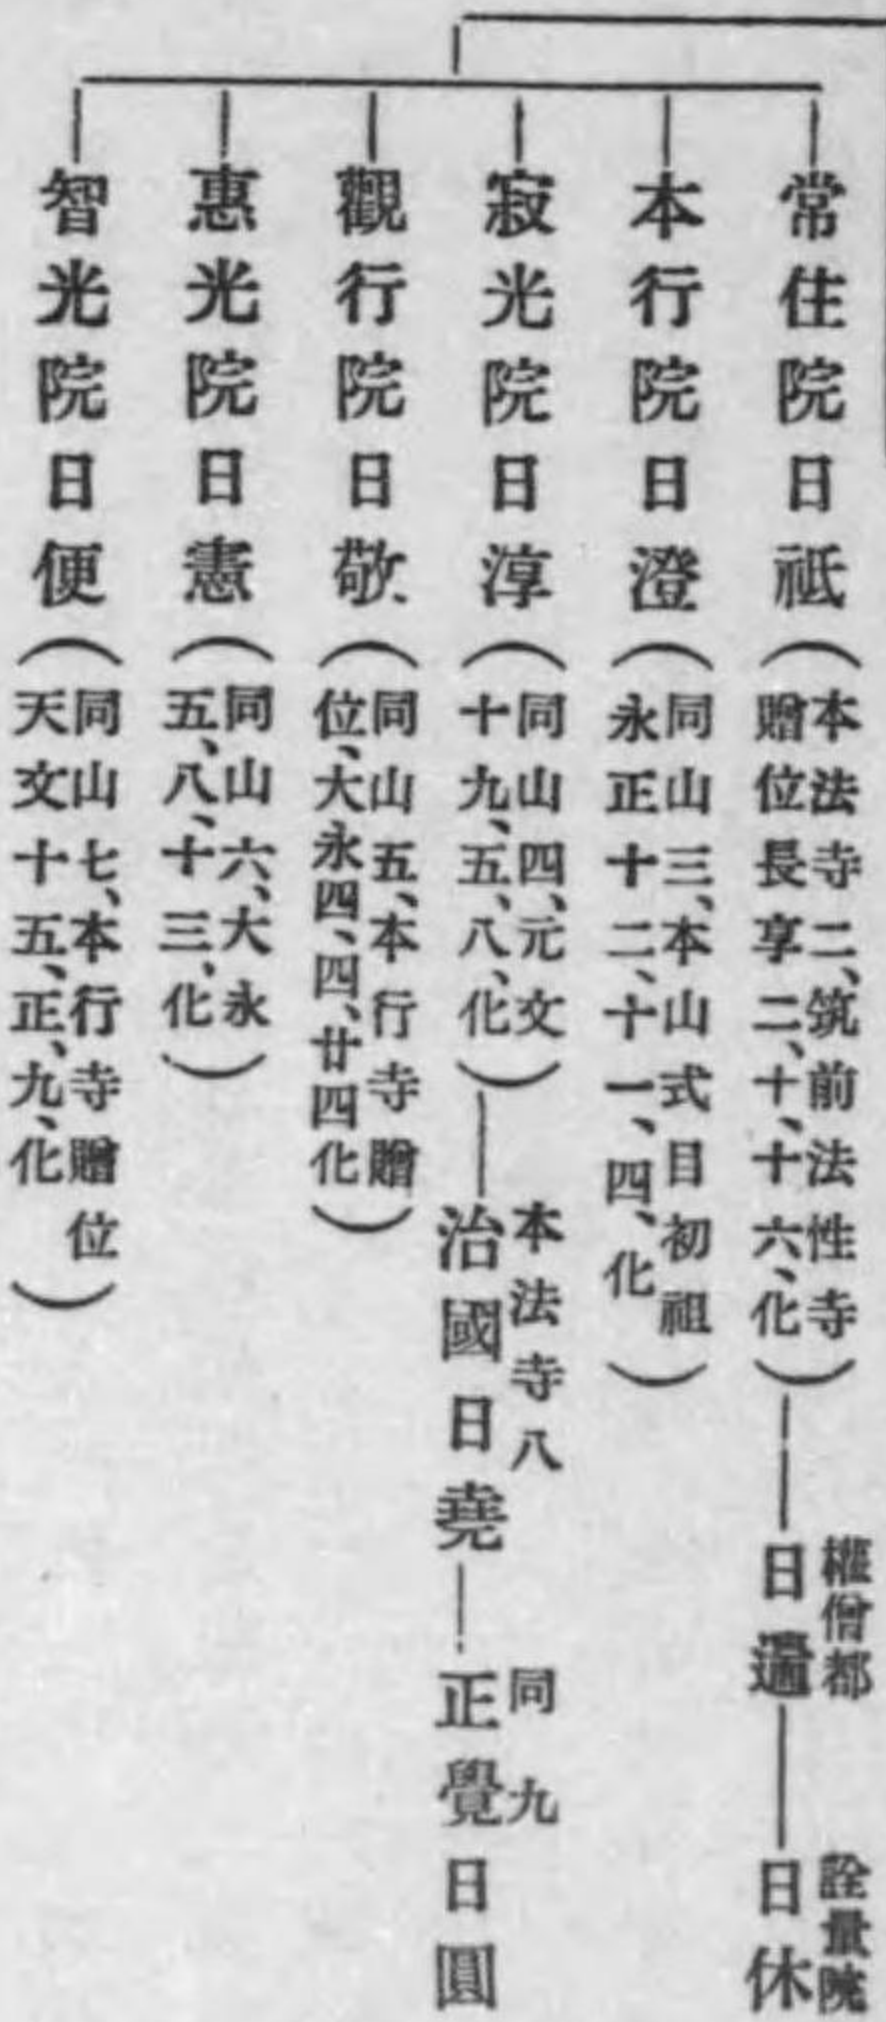 常住院日祗(本法寺二、筑前法性寺
贈位長享二、十、十六、化)
權僧都
日遍
詮量院
日休
本行院日澄(同山三、本山式目初祖
永正十二、十一、四、化)
寂光院日淳(同山四、元文
十九、五、八、化)
本法寺八
治國日堯
同九
正覺日圓
觀行院日敬(同山五、本行寺贈
位、大永四、四、廿四化)
惠光院日憲(同山六、大永
五、八、十三、化)
智光院日便(同山七、本行寺贈位
天文十五、正、九、化)